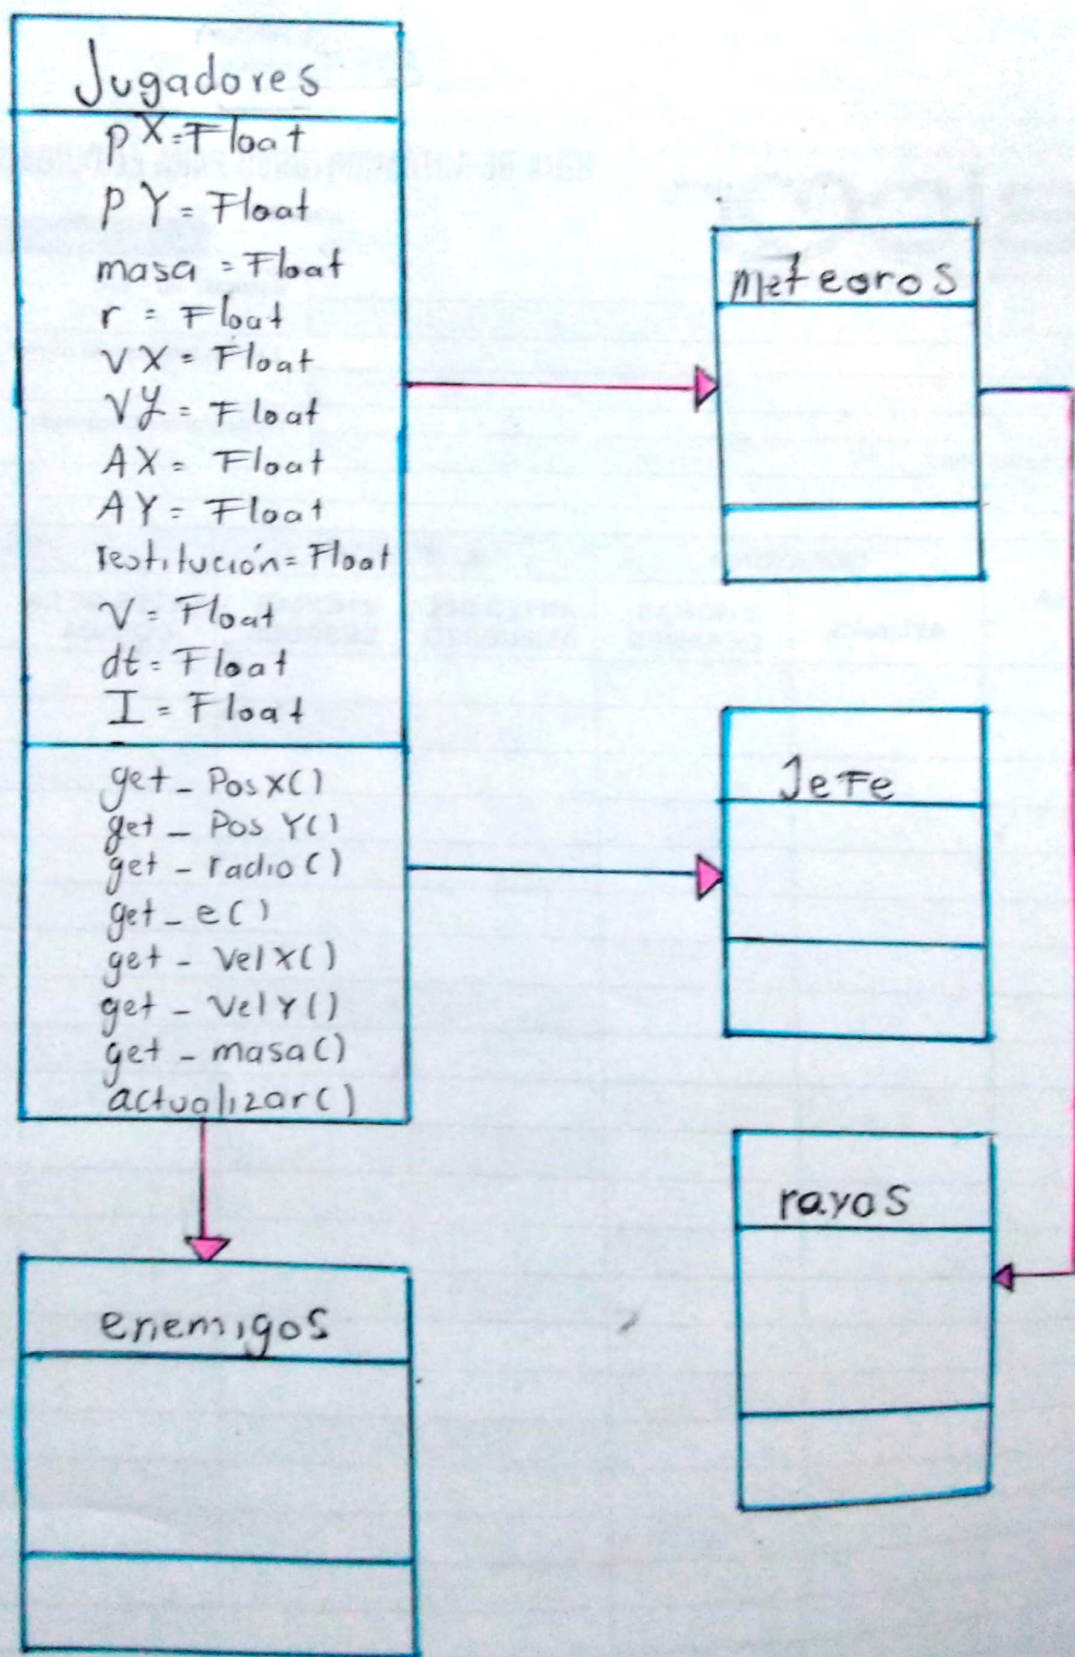 Jugadores
pX=Float
pY=Float
masa=Float
r=Float
VX=Float
VY=Float
AX=Float
AY=Float
restitución=Float
V=Float
dt=Float
I=Float
get_PosX()
get_PosY()
get_radio()
get_e()
get_VelX()
get_VelY()
get_masa()
actualizar()
enemigos
meteoros
Jefe
rayos